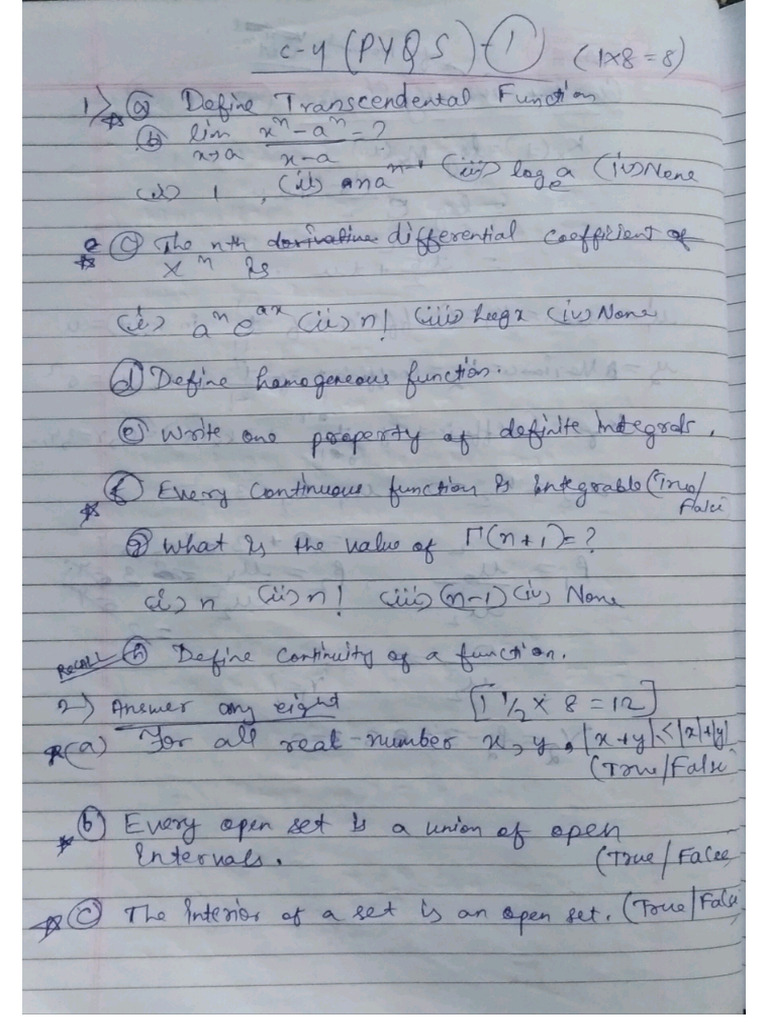 C-4 (PYQS)-① (1×8=8)
1) ⓐ Define Transcendental Function
ⓑ lim x→a xⁿ-aⁿ/x-a = ?
(i) 1, (ii) naⁿ⁻¹ (iii) logₑa (iv) None
ⓒ The nth derivative differential coefficient of
xⁿ is
(i) aⁿeᵃˣ (ii) n! (iii) logx (iv) None
ⓓ Define homogeneous function.
ⓔ Write one property of definite integrals.
ⓕ Every continuous function is integrable (True/
False
ⓖ What is the value of Γ(n+1)=?
(i) n (ii) n! (iii) (n-1) (iv) None
RECALL ⓗ Define continuity of a function.
2) Answer any eight [1 1/2 × 8 = 12]
(a) For all real number x, y, |x+y|<|x|+|y|
(True/False
ⓑ Every open set is a union of open
Intervals. (True/False
ⓒ The Interior of a set is an open set. (True/False